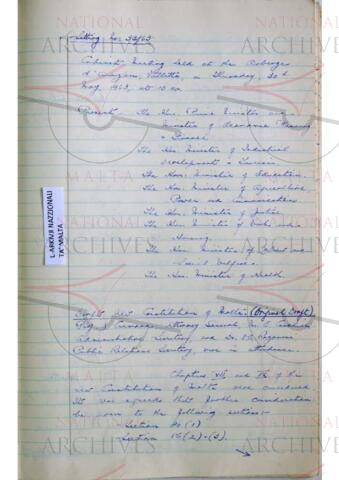 Sitting No: 32/63
Cabinet Meeting held at the Auberge
d'Aragon, Valletta, on Thursday, 30th
May, 1963, at 10 am
Present: The Hon. Prime Minister and
Minister of Economic Planning
& Finance
The Hon. Minister of Industrial
Development & Tourism
The Hon. Minister of Education.
The Hon. Minister of Agriculture,
Power and Communications
The Hon. Minister of Justice
The Hon. Minister of Public
Housing
The Hon. Minister of
Social Welfare.
The Hon. Minister of Health.
L-ARKIVJI NAZZJONALI
TA' MALTA
Draft new Constitution of Malta. (Original Draft)
Attorney General,
Administrative Secretary, and Dr.
Public Relations Secretary, were in attendance.
Chapters and of the
new Constitution of Malta were considered.
It was agreed that further consideration
be given to the following sections:-
Section (1)
Section (2)
NATIONAL
ARCHIVES
MALTA